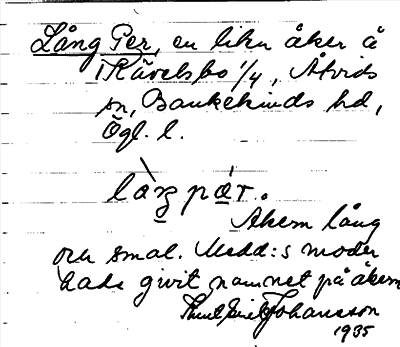 Lång Per, en liten åker å
Rävelsbo 1/4, Åtvids
sn, Bankekinds hd,
Ögl. l.
làŋ pár.
Åkern lång
och smal. Medd:s moder
hade givit namnet på åkern
Johansson
1935